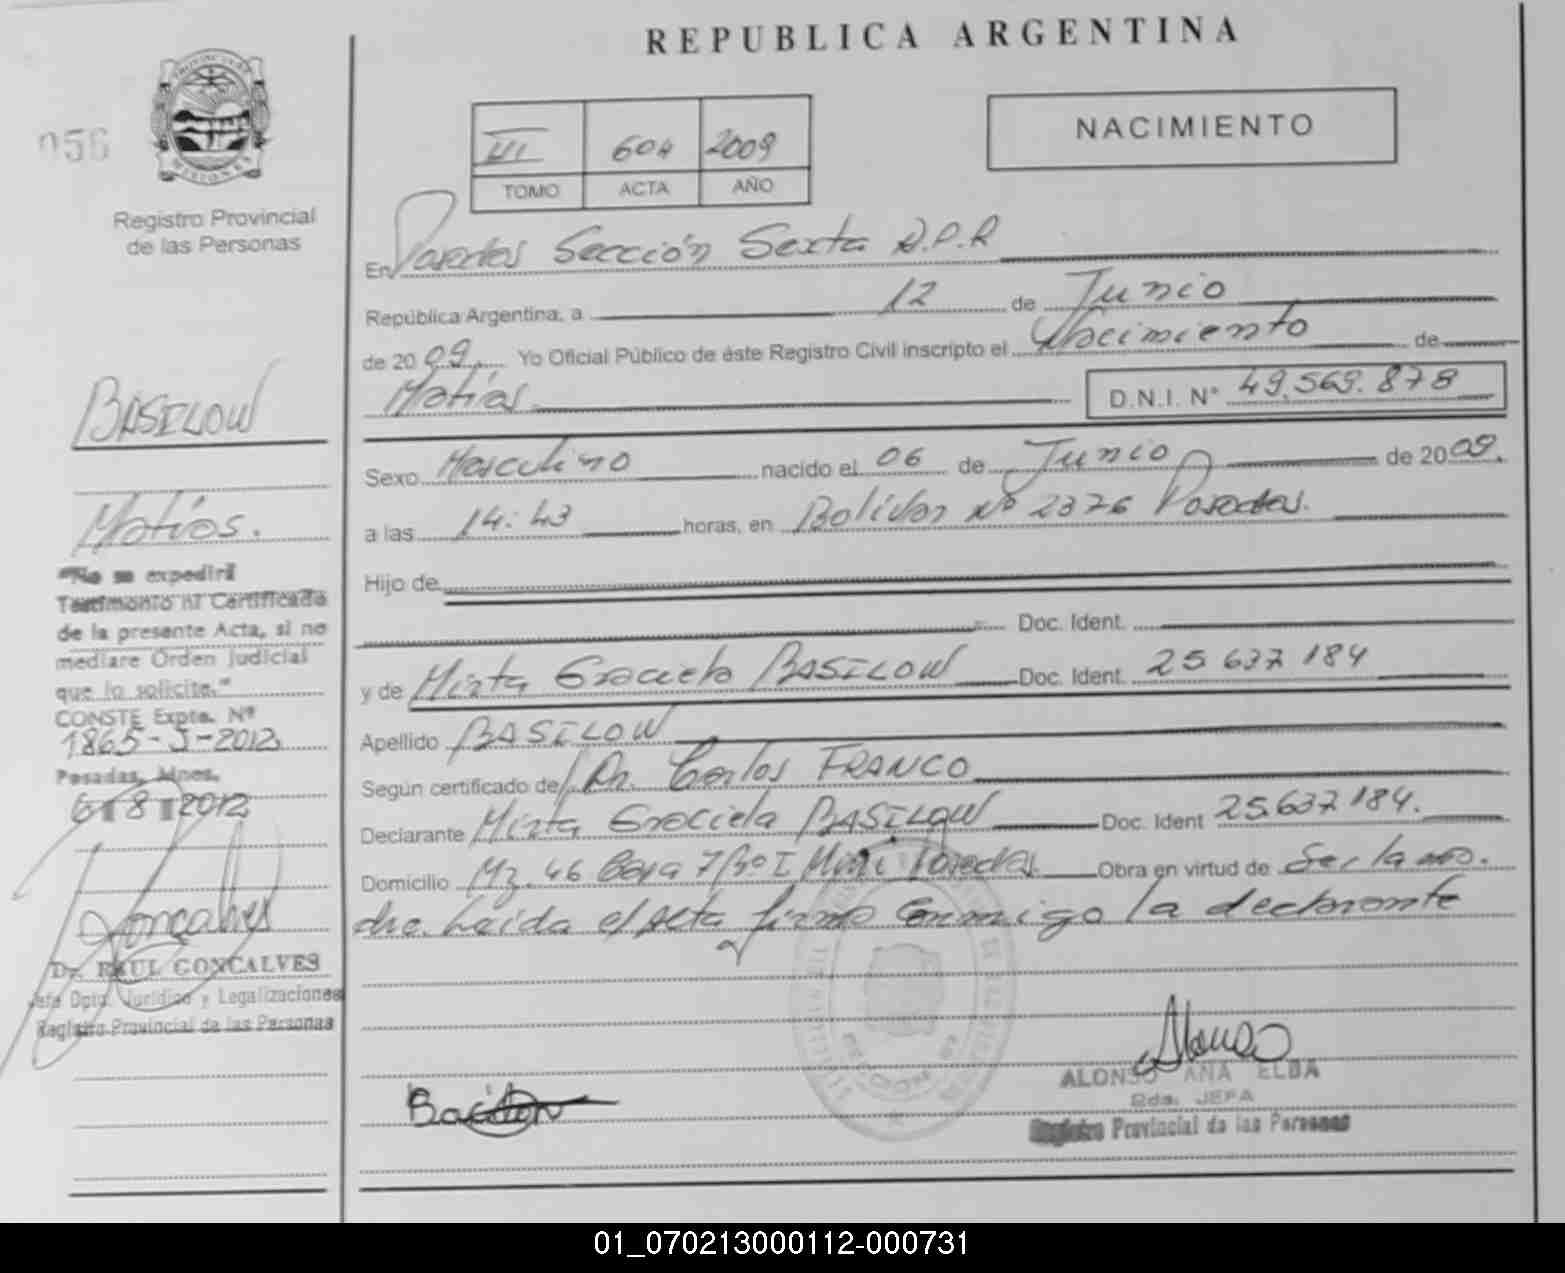 REPUBLICA ARGENTINA
PROVINCIA DE MISIONES
056
Registro Provincial
de las Personas
III 604 2009
TOMO ACTA AÑO
NACIMIENTO
En Posadas Sección Sexta R.P.R
República Argentina, a 12 de Junio
de 2009. Yo Oficial Público de éste Registro Civil inscripto el Nacimiento de
Matías. D.N.I. N° 49.569.878
Sexo Masculino nacido el 06 de Junio de 2009.
a las 14:43 horas, en Bolívar Nº 2376 Posadas.
Hijo de
Doc. Ident.
y de Mirta Graciela BASILOW Doc. Ident. 25 637 184
Apellido BASILOW
Según certificado de Dr. Carlos FRANCO
Declarante Mirta Graciela BASILOW Doc. Ident 25.637 184.
Domicilio Mz. 46 Casa 7 Bº I Posadas. Obra en virtud de Ser la ma
dre. Leída el Acta firma Conmigo la declarante
BASILOW
Matías.
"No se expedirá
Testimonio ni Certificado
de la presente Acta, si no
mediare Orden Judicial
que lo solicite."
CONSTE Expte. Nº
1865-J-2012
Posadas, Mnes,
6 8 2012
Goncalves
Dr. RAUL GONCALVES
Jefe Dpto. Jurídico y Legalizaciones
Registro Provincial de las Personas
Alonso
ALONSO ANA ELBA
2da. JEFA
Registro Provincial de las Personas
01_070213000112-000731